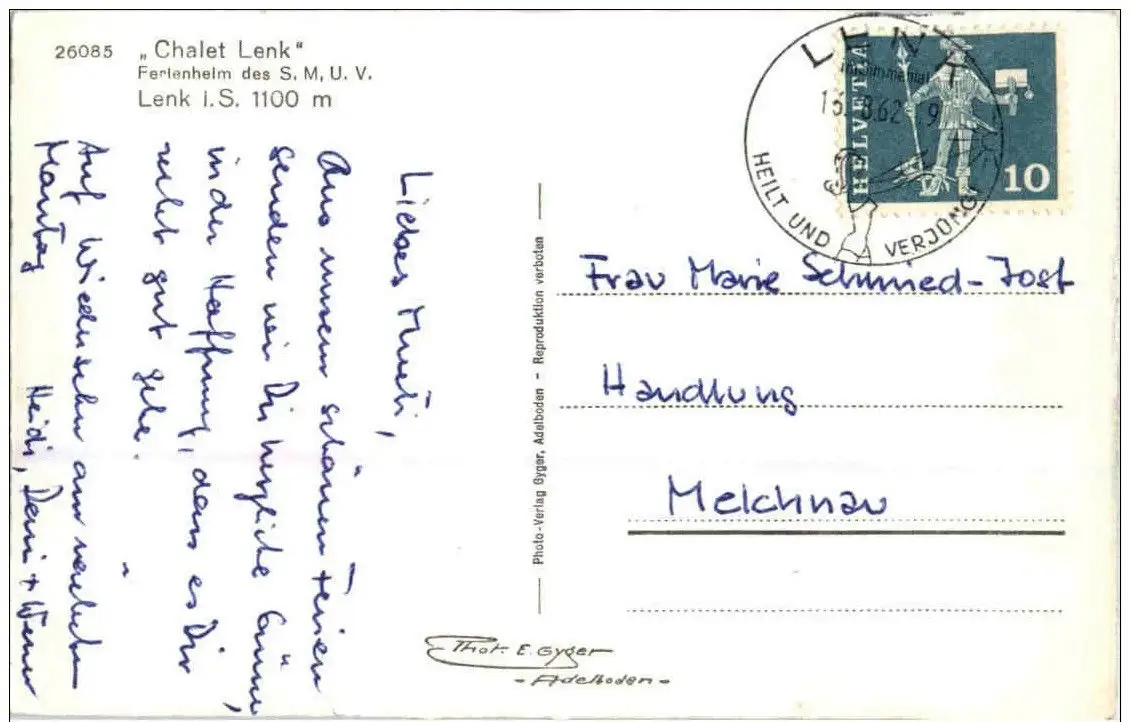 26085 „Chalet Lenk"
Ferienheim des S. M. U. V.
Lenk i. S. 1100 m
Liebes Mueti,
Aus unsern schönen Ferien
senden wir Dir herzliche Grüsse,
in der Hoffnung, dass es Dir
recht gut gehe.
Auf Wiedersehn am nächsten
Montag
Heidi, Dani + Werner
Photo-Verlag Gyger, Adelboden – Reproduktion verboten
Phot. E. Gyger
- Adelboden -
LENK
im Simmental
13. 8.62 9
HEILT UND VERJÜNGT
HELVETIA
10
Frau Marie Schmied-Jost
Handlung
Melchnau